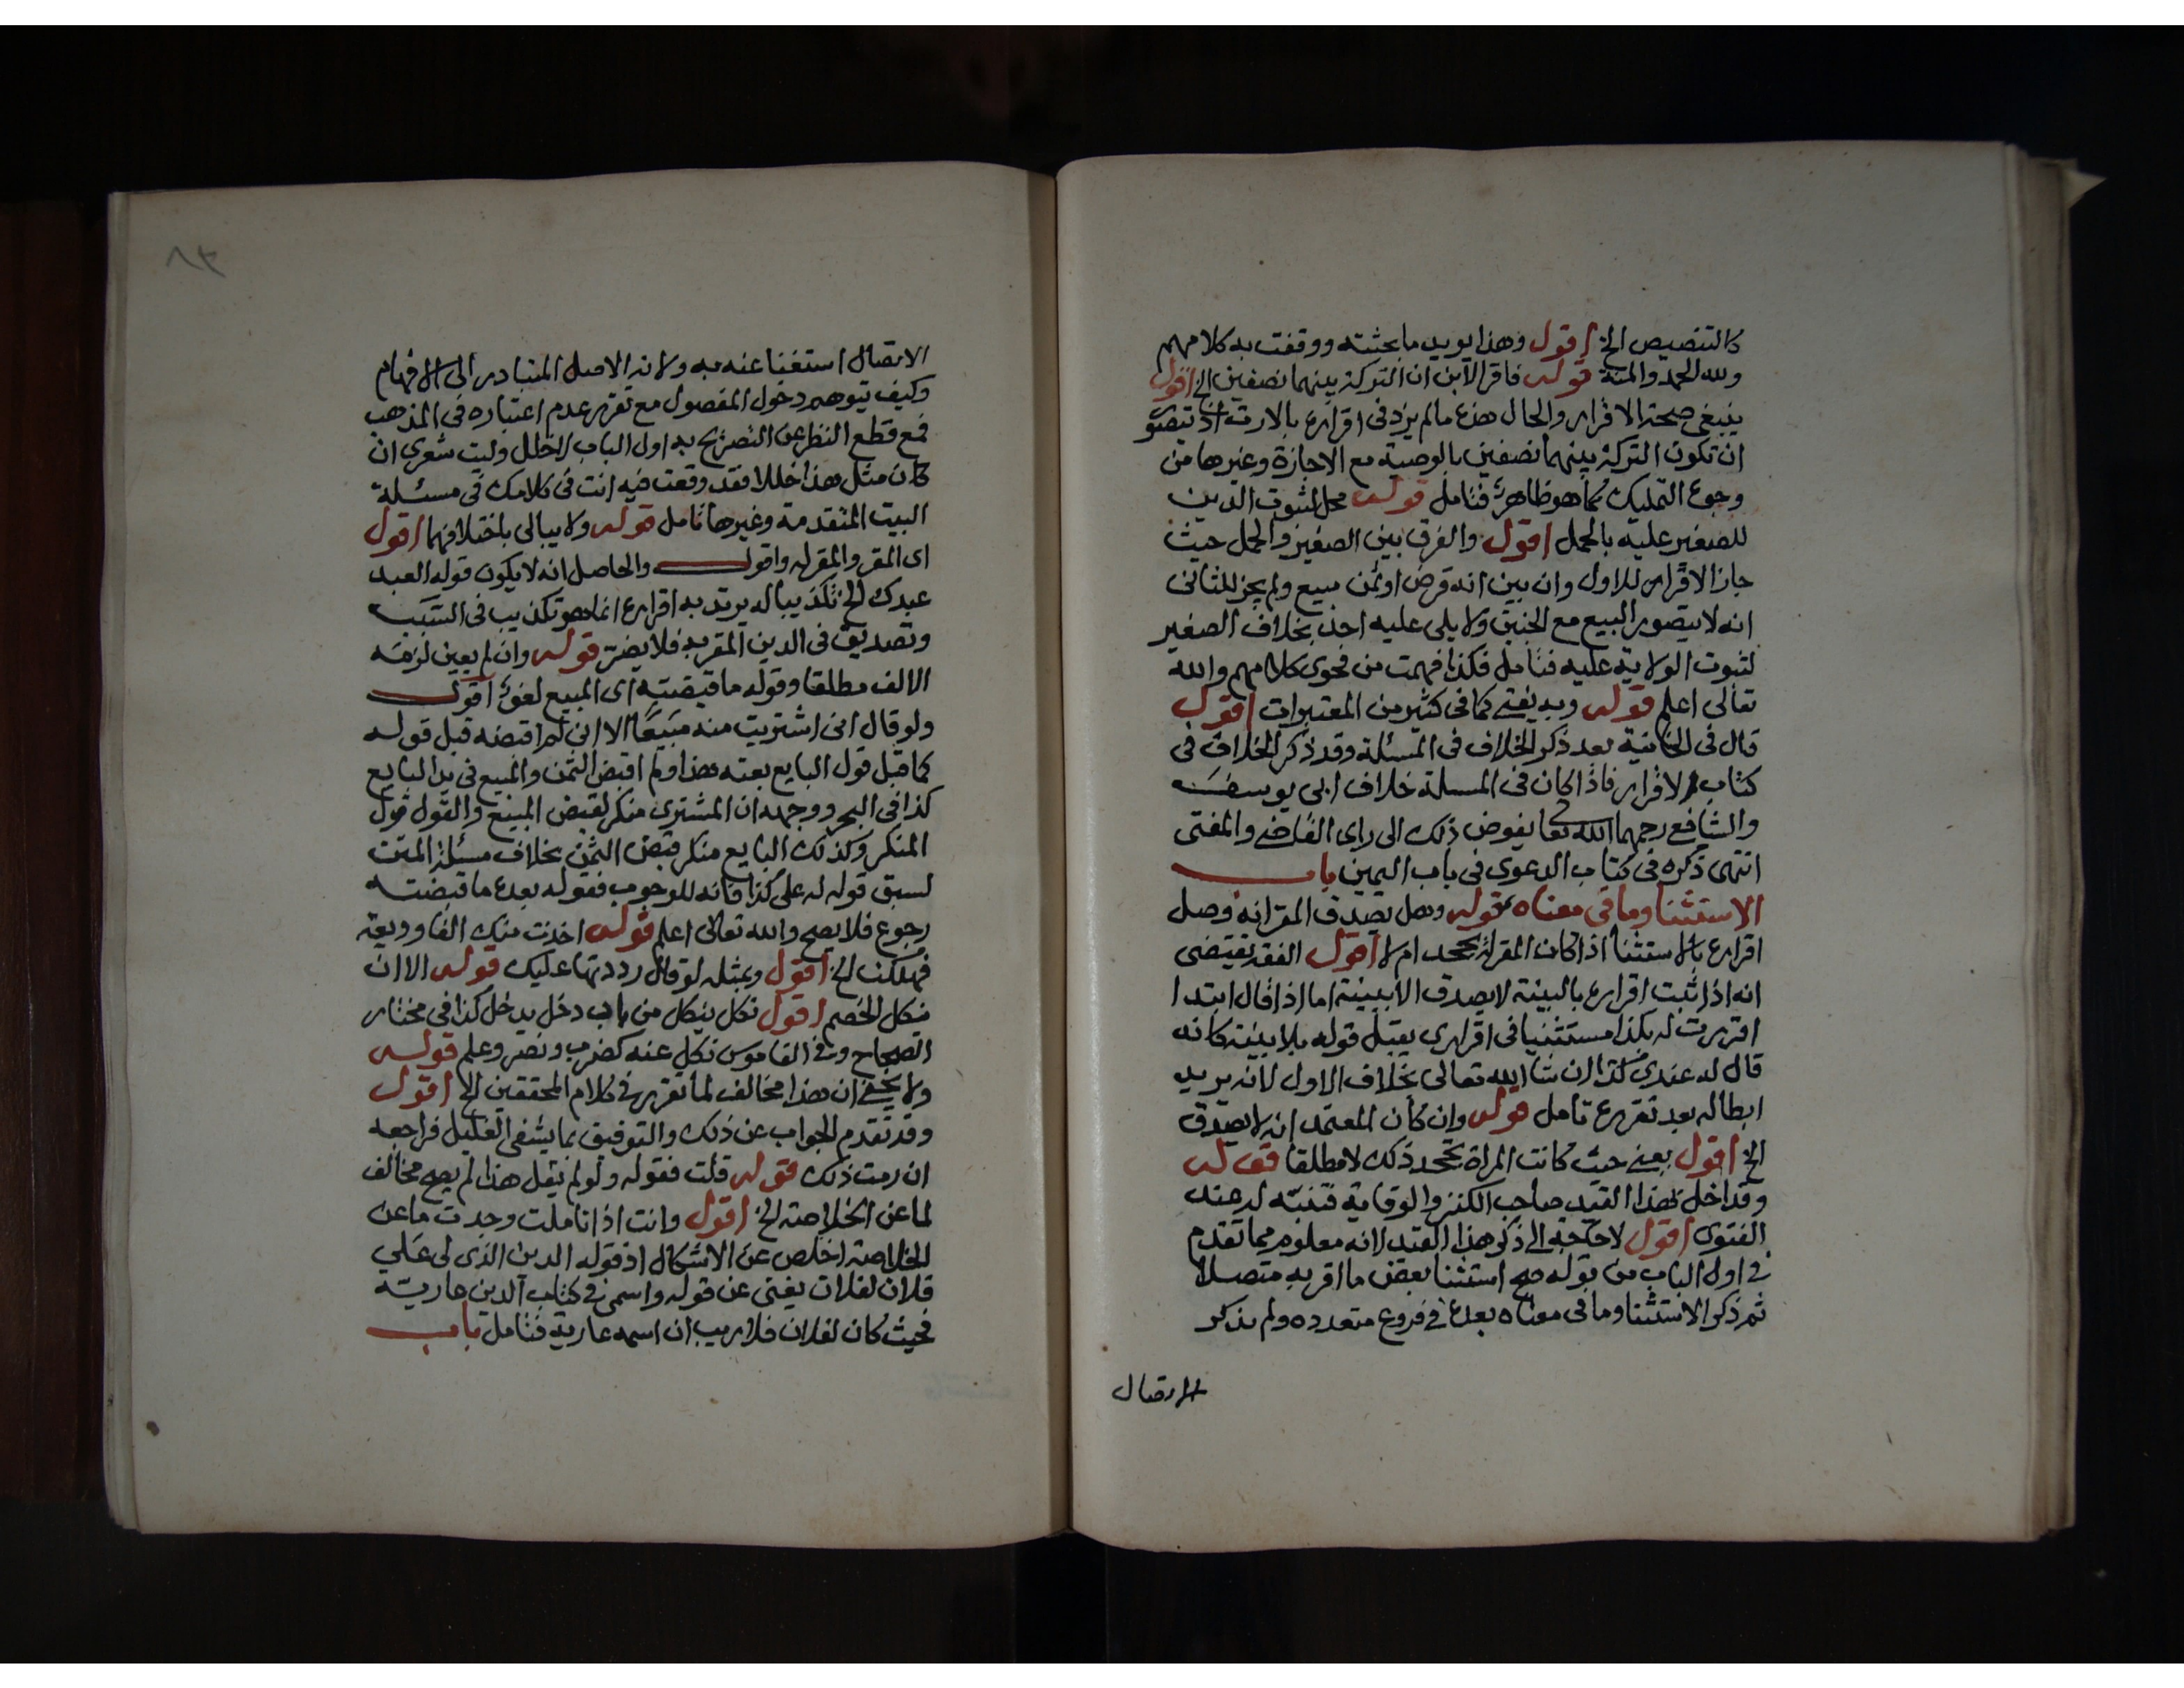 كالتنصيص الخ اقول وهذا يويد ما بحثته ووقفت به كلامهم
ولله الحمد والمنة قوله فاقر الابن ان التركة بينهما نصفين الخ اقول
ينبغي صحة الاقرار والحال هذه ما لم يزد في اقراره بالارث اذ تيصو
ان تكون التركة بينهما نصفين بالوصية مع الاجازة وغيرها من
وجوه التمليك كما هو ظاهر فتامل قوله محل لثبوت الدين
للصغير عليه بالحمل اقول والفرق بين الصغير والحمل حيث
جاز الاقرار للاول وان بين انه قرض او ثمن مبيع ولم يجز للثاني
انه لا يتصور البيع مع الجنين ولا يلى عليه احد بخلاف الصغير
لثبوت الولاية عليه فتامل فكذا فهمت من فحوى كلامهم والله
تعالى اعلم قوله وبه يفتى كما في كثير من المعتبرات اقول
قال في الخانية بعد ذكر الخلاف في المسئلة وقد ذكر الخلاف في
كتاب الاقرار فاذا كان في المسلة خلاف ابى يوسف
والشافع رحمهما الله تعا يفوض ذلك الى راى القاضي والمفتى
انتهى ذكره في كتاب الدعوى في باب اليمين باب
الاستثنا وما في معناه قوله وهل يصدق المقر انه وصل
اقراره بالاستثنا اذا كان المقر له يجحد ام لا اقول الفقه تقيتصى
انه اذا ثبت اقراره بالبينة لا يصدق الا ببينة اما اذا قال ابتدا
اقررت له بكذا مستثنيا في اقراري يقبل قوله بلا بينة كانه
قال له عندى كذا ان شا الله تعالى بخلاف الاول لانه يريد
ابطاله بعد تقرره تامل قوله وان كان المعتمد انه لا يصدق
الخ اقول يعنى حيث كانت المراة تجحد ذلك لا مطلقا قوله
وقد اخل بهذا القيد صاحب الكنز والوقاية فتنبه له عند
الفتوى اقول لا حاجة الى ذكر هذا القيد لانه معلوم مما تقدم
في اول الباب من قوله صح استثنا بعض ما اقر به متصلا
ثم ذكر الاستثنا وما في معناه بعده في فروع متعدده ولم يذكر
الاتصال
الاتصال استغنا عنه به ولانه الاصل المتبادر الى الافهام
وكيف يتوهم دخول المفصول مع تقرر عدم اعتباره في المذهب
فمع قطع النظر عن التصريح به اول الباب لا خلل وليت شعرى ان
كان مثل هذا خللا فقد وقعت فيه انت في كلامك في مسئلة
البيت المتقدمة وغيرها تامل قوله ولا يبالى باختلافهما اقول
اى المقر والمقر له واقول والحاصل انه لا يكون قوله العبد
عبدك الخ تكذيبا له يرتد به اقراره انما هو تكذيب في السبب
وتصديق في الدين المقر به فلا يضر قوله وان لم يعين لزمه
الالف مطلقا وقوله ما قبضته اى المبيع لغو اقول
ولو قال انى اشتريت منه مبيعا الا انى لم اقبضه قبل قوله
كما قبل قول البايع بعته هذا ولم اقبض الثمن والمبيع في يد البايع
كذا في البحر ووجهه ان المشترى منكر لقبض المبيع والقول قول
المنكر وكذلك البايع منكر قبض الثمن بخلاف مسئلة المتن
لسبق قوله له على كذا فانه للوجوب فقوله بعده ما قبضته
رجوع فلا يصح والله تعالى اعلم قوله اخذت منك الفا وديعة
فهلكت الخ اقول وبمثله لو قال رددتها عليك قوله الا ان
ينكل الخصم اقول نكل ينكل من باب دخل يدخل كذا في مختار
الصحاح وفي القاموس نكل عنه كضرب ونصر وعلم قوله
ولا يخفى ان هذا مخالف لما تقرر في كلام المحققين الخ اقول
وقد تقدم الجواب عن ذلك والتوفيق بما يشفى الغليل فراجعه
ان رمت ذلك قوله قلت فقوله ولو لم يقل هذا لم يصح مخالف
لما عن الخلاصة الخ اقول وانت اذا تاملت وجدت ما عن
الخلاصة اخلص عن الاشكال اذ قوله الدين الذى لى على
فلان لفلان يغنى عن قوله واسمى في كتاب الدين عارية
فحيث كان لفلان فلا ريب ان اسمه عارية فتامل باب